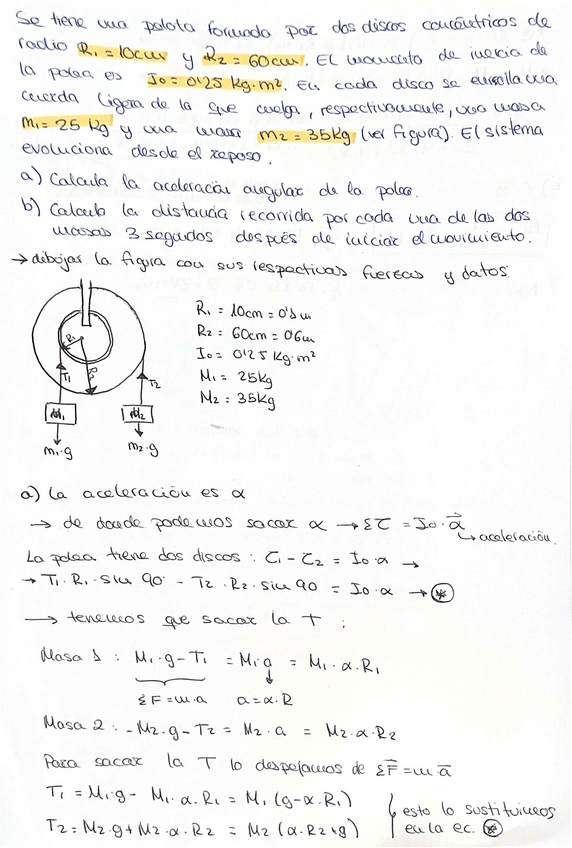 Se tiene una polola formada por dos discos concéntricos de
radio R₁ = 10cm y R₂ = 60cm. El momento de inercia de
la polea es I₀ = 0'25 kg·m². En cada disco se enrolla una
cuerda ligera de la que cuelga, respectivamente, una masa
m₁ = 25 kg y una masa m₂ = 35kg (ver figura). El sistema
evoluciona desde el reposo.
a) Calcula la aceleración angular de la polea.
b) Calcula la distancia recorrida por cada una de las dos
masas 3 segundos después de iniciar el movimiento.
→ dibujar la figura con sus respectivas fuerzas y datos.
R₁ = 10cm = 0'1m
R₂ = 60cm = 0'6m
I₀ = 0'25 Kg·m²
M₁ = 25kg
M₂ = 35kg
R₁
R₂
T₁
T₂
M₁
M₂
m₁·g
m₂·g
a) La aceleración es α
→ de donde podemos sacar α → Στ = I₀·α⃗
↳ aceleración.
La polea tiene dos discos: τ₁ - τ₂ = I₀·α →
→ T₁·R₁·sin 90º - T₂·R₂·sin 90 = I₀·α → ⊛
→ tenemos que sacar la T :
Masa 1 : M₁·g - T₁ = M₁·a = M₁·α·R₁
ΣF = m·a a = α·R
Masa 2 : -M₂·g - T₂ = M₂·a = M₂·α·R₂
Para sacar la T lo despejamos de ΣF⃗ = m a⃗
T₁ = M₁·g - M₁·α·R₁ = M₁ (g - α·R₁)
T₂ = M₂·g + M₂·α·R₂ = M₂ (α·R₂ + g)
esto lo sustituimos
en la ec. ⊛